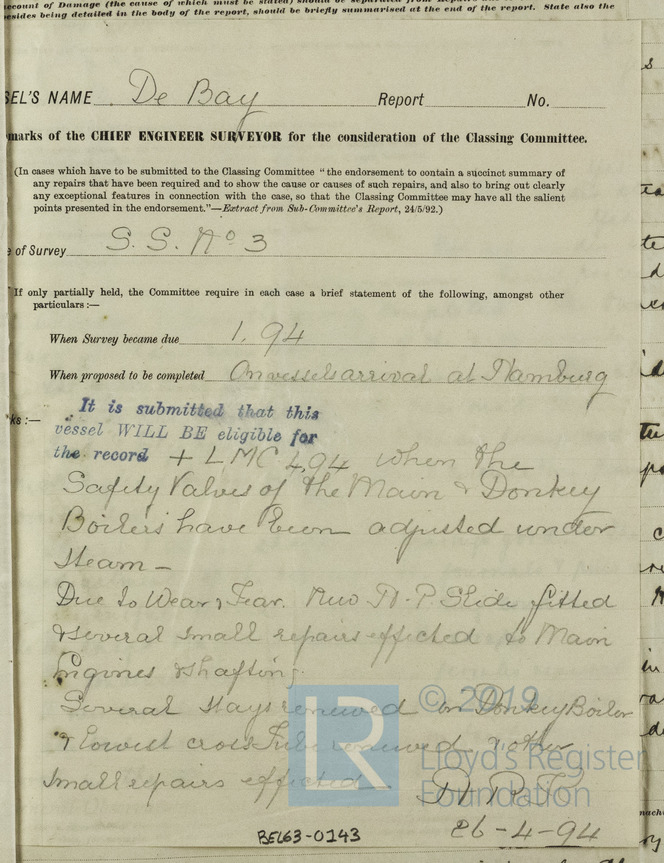 ccount of Damage (the cause of which must be stated) should be separated from Repairs
esides being detailed in the body of the report, should be briefly summarised at the end of the report. State also the
SEL'S NAME De Bay Report No.
marks of the CHIEF ENGINEER SURVEYOR for the consideration of the Classing Committee.
(In cases which have to be submitted to the Classing Committee "the endorsement to contain a succinct summary of
any repairs that have been required and to show the cause or causes of such repairs, and also to bring out clearly
any exceptional features in connection with the case, so that the Classing Committee may have all the salient
points presented in the endorsement."—Extract from Sub-Committee's Report, 24/5/92.)
e of Survey S.S. No 3
If only partially held, the Committee require in each case a brief statement of the following, amongst other
particulars :—
When Survey became due 1.94
When proposed to be completed On vessels arrival at Hamburg
ks :— It is submitted that this
vessel WILL BE eligible for
the record + LMC 4.94 when the
Safety Valves of the Main & Donkey
Boilers have been adjusted under
steam -
Due to Wear & Tear. New H.P. Slide fitted
& several small repairs effected to Main
Engines & shafting.
Several stays renewed in Donkey Boiler
& lowest cross tube renewed & other
small repairs effected
26-4-94
BEL63-0143
LR © 2019
Lloyd's Register
Foundation